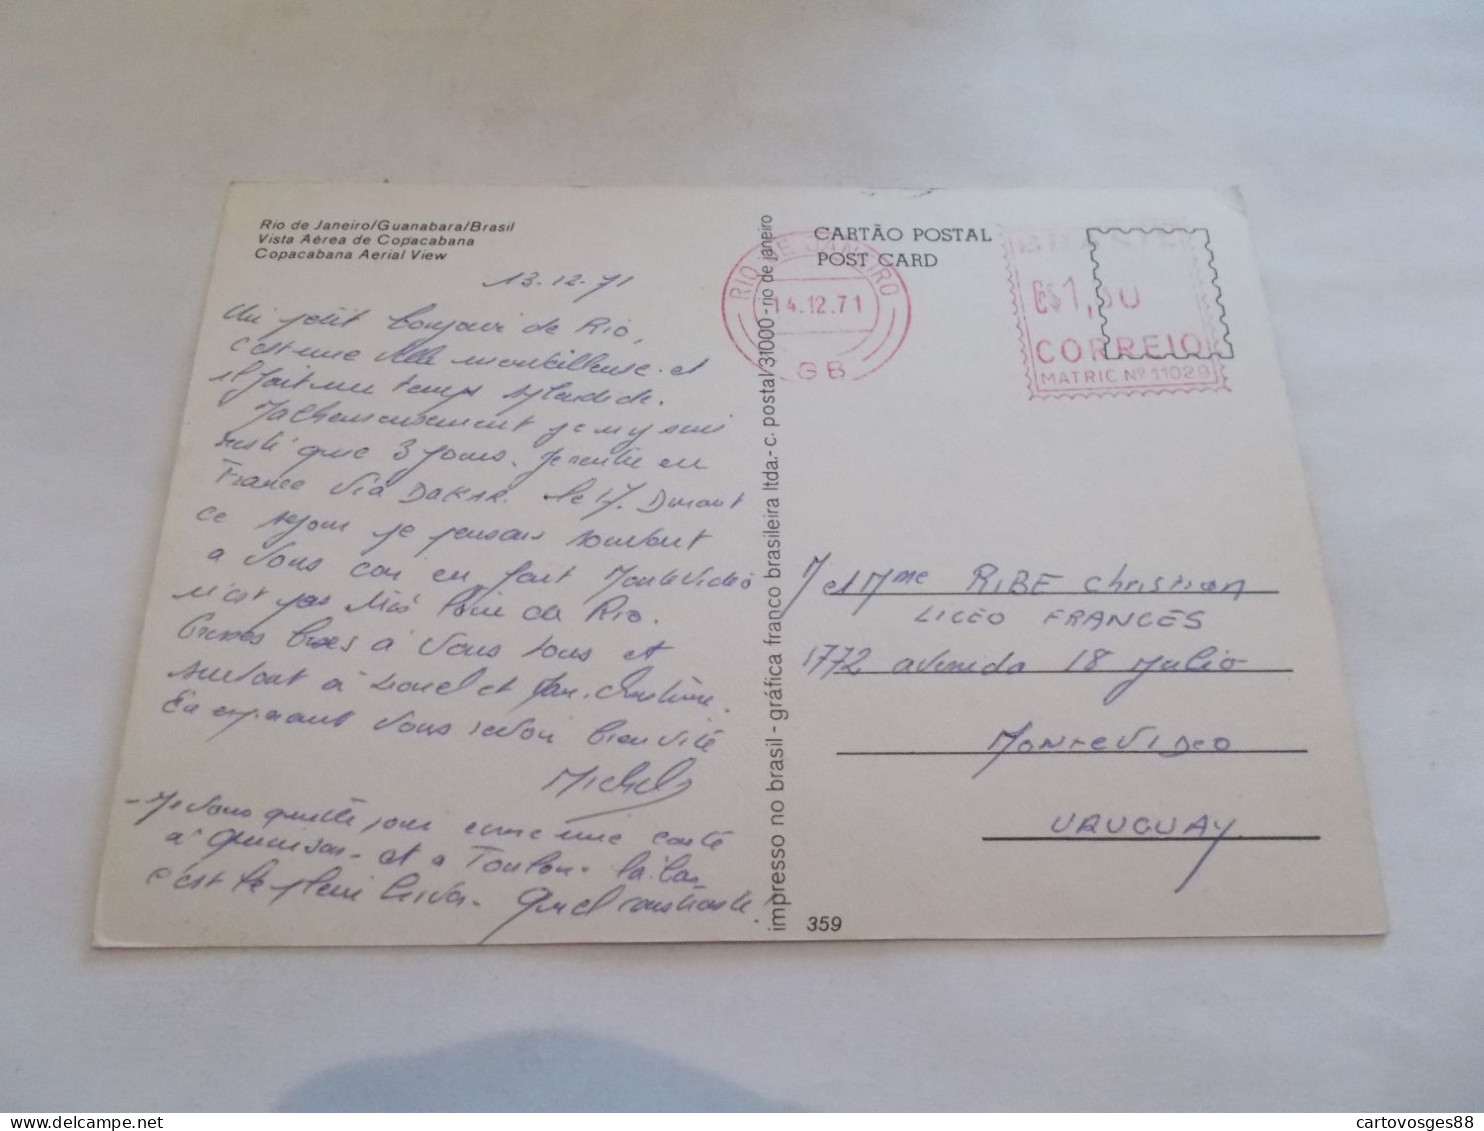 Rio de Janeiro/Guanabara/Brasil
Vista Aérea de Copacabana
Copacabana Aerial View
13.12.71
Un petit bonjour de Rio,
c'est une ville merveilleuse et
il fait un temps splendide.
Malheureusement je n'y suis
resté que 3 jours. Je rentre en
France via DAKAR le 17. Durant
ce séjour je pensais souvent
a vous car en fait Montevideo
n'est pas très loin de Rio.
Grosses bises à vous tous et
surtout à Lionel et
En espérant vous revoir bien vite
Michel
- Je vous quitte, j'ai encore une carte
a et a Toulon. là bas
c'est le plein hiver. Quel contraste!
impresso no brasil - gráfica franco brasileira ltda. - c. postal 31000 - rio de janeiro
CARTÃO POSTAL
POST CARD
RIO DE JANEIRO
14.12.71
GB
BRASIL
CORREIO
MATRIC Nº 11029
M et Mme RIBE Christian
LICEO FRANCES
1772 avenida 18 Julio
MONTEVIDEO
URUGUAY
359
cartovosges88